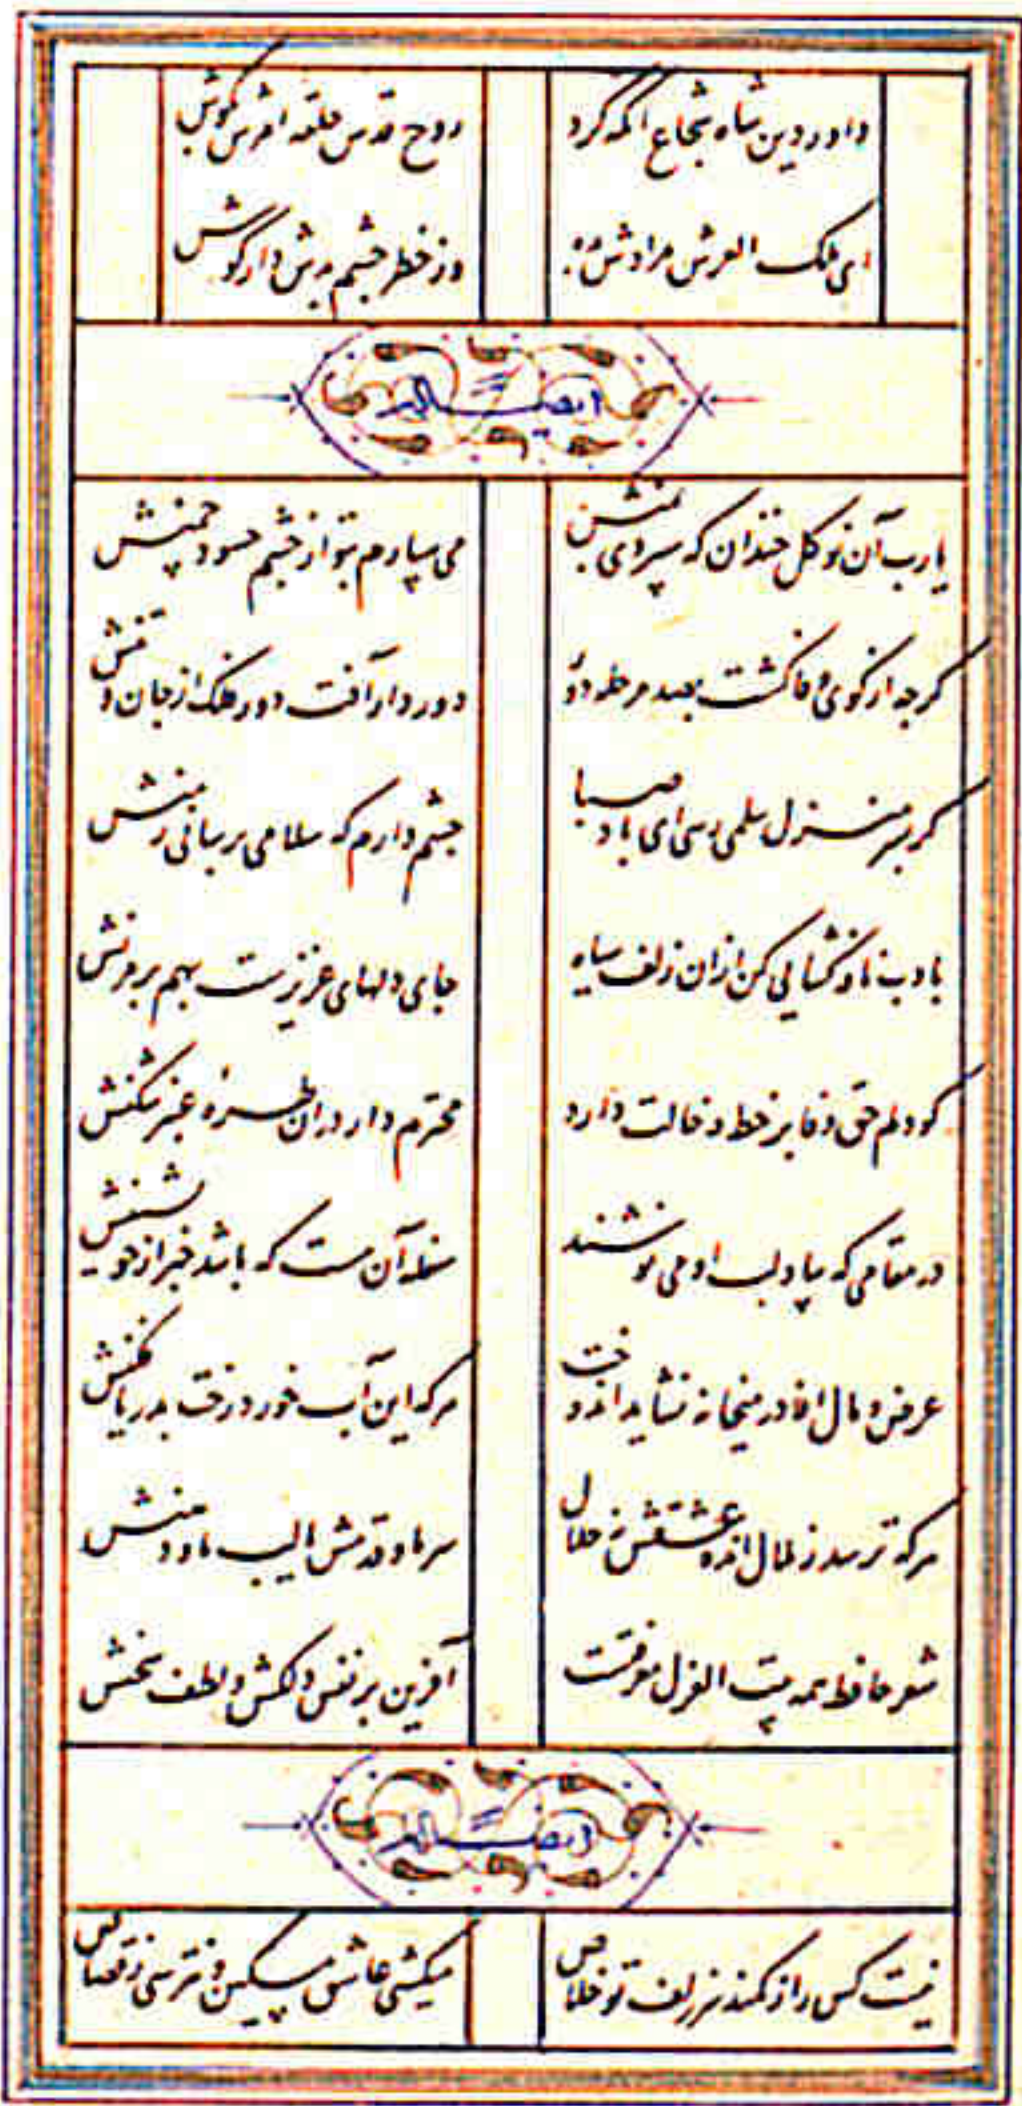 داور دین شاه شجاع آنکه کرد روح قدس حلقه امرش بگوش
ای ملک العرش مرادش بده وز خطر چشم بدش دار گوش
ایضاً له
یارب آن نوگل خندان که سپردی بمنش می سپارم بتو از چشم حسود چمنش
گرچه از کوی وفا گشت بصد مرحله دور دور دار آفت دور فلک از جان و تنش
گر بسر منزل سلمی رسی ای باد صبا چشم دارم که سلامی برسانی ز منش
بادب نافه گشایی کن ازان زلف سیاه جای دلهای عزیزست بهم بر مزنش
گو دلم حق وفا بر خط و خالت دارد محترم دار دران طره عنبر شکنش
در مقامی که بیاد لب او می نوشند سفله آن مست که باشد خبر از خویشتنش
عرض و مال از در میخانه نشاید اندوخت هرکه این آب خورد رخت بدریا فکنش
هرکه ترسد ز ملال انده عشقش نه حلال سر ما و قدمش یا لب ما و دهنش
شعر حافظ همه بیت الغزل معرفتست آفرین بر نفس دلکش و لطف سخنش
ایضاً له
نیست کس را ز کمند سر زلف تو خلاص میکشی عاشق مسکین و نترسی ز قصاص